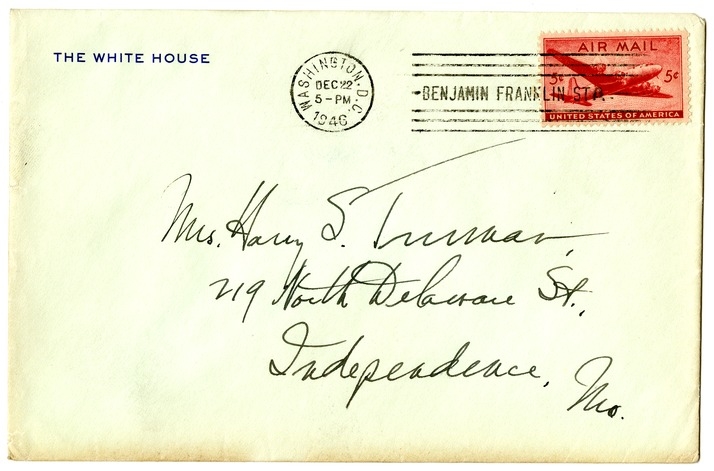 THE WHITE HOUSE
WASHINGTON, D.C.
DEC 22
5-PM
1946
BENJAMIN FRANKLIN STA.
AIR MAIL
5¢ 5¢
UNITED STATES OF AMERICA
Mrs. Harry S. Truman,
219 North Delaware St.,
Independence,
Mo.